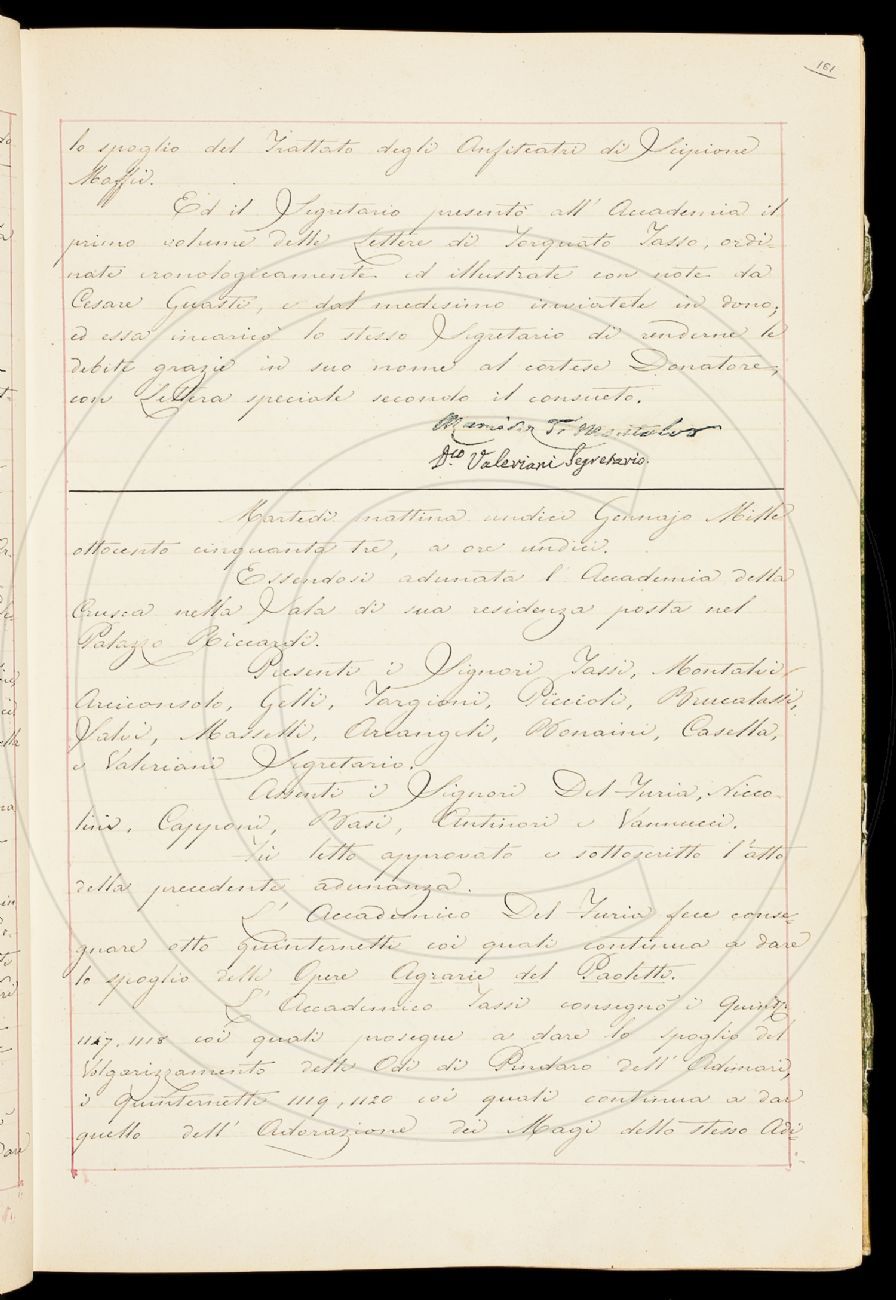 161
lo spoglio del Trattato degli Anfiteatri di Scipione
Maffei.
Ed il Segretario presentò all' Accademia il
primo volume delle Lettere di Torquato Tasso, ordi-
nate cronologicamente ed illustrate con note da
Cesare Guasti, e dal medesimo inviatele in dono;
ed essa incaricò lo stesso Segretario di renderne le
debite grazie in suo nome al cortese Donatore,
con Lettera speciale secondo il consueto.
Valeriani Segretario.
Martedì mattina undici Gennajo Mille
ottocento cinquanta tre, a ore undici.
Essendosi adunata l' Accademia della
Crusca nella Sala di sua residenza posta nel
Palazzo Riccardi.
Presenti i Signori Tassi, Montalvi
Arciconsolo, Gelli, Targioni, Piccioli, Brucalassi,
Salvi, Masselli, Arcangeli, Bonaini, Casella,
e Valeriani Segretario.
Assenti i Signori Del-Furia, Nicco-
lini, Capponi, Basi, Antinori e Vannucci.
Fù letto approvato e sottoscritto l'atto
della precedente adunanza.
L' Accademico Del-Furia fece conse-
gnare otto quinternetti coi quali continua a dare
lo spoglio delle Opere Agrarie del Paoletti.
L' Accademico Tassi consegnò i Quint.
1117, 1118 coi quali prosegue a dare lo spoglio del
Volgarizzamento delle Odi di Pindaro dell' Adimari,
i Quinternetti 1119, 1120 coi quali continua a dar
quello dell' Adorazione dei Magi dello stesso Adi-